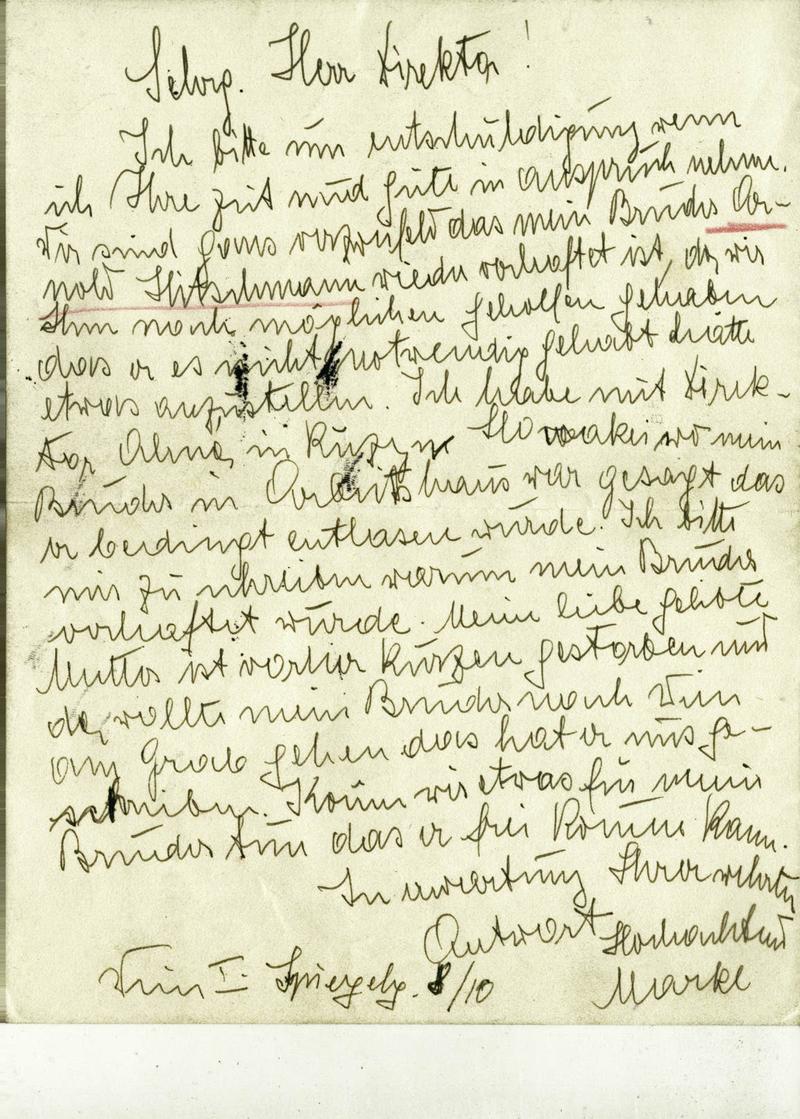 Sehrg. Herr Direktor!
Ich bitte um entschuldigung wenn
ich Ihre zeit und güte in anspruch nehme.
Wir sind gans verzwufeld das mein Bruder Ar-
nold Hitschmann wieder verhaftet ist, da wir
Ihm nach möglichen geholfen gehaben
das er es nicht notwendig gehabt hätte
etwas anzustellen. Ich habe mit Direk-
tor in Slowakei wo mein
Bruder in Arbeitshaus war gesagt das
er bedingt entlasen würde. Ich bitte
mir zu schreiben warum mein Bruder
verhaftet wurde. Meine liebe gelibte
Mutter ist vor kurzen gestorben und
da wollte mein Bruder nach Wien
am Grab gehen das hat er uns ge-
schriben. Könen wir etwas für mein
Bruder tun das er frei kommen kann.
In erwartung Ihrer wehrten
Antwort Hochachtend
Wien I. Spiegelg. 8/10 Markl